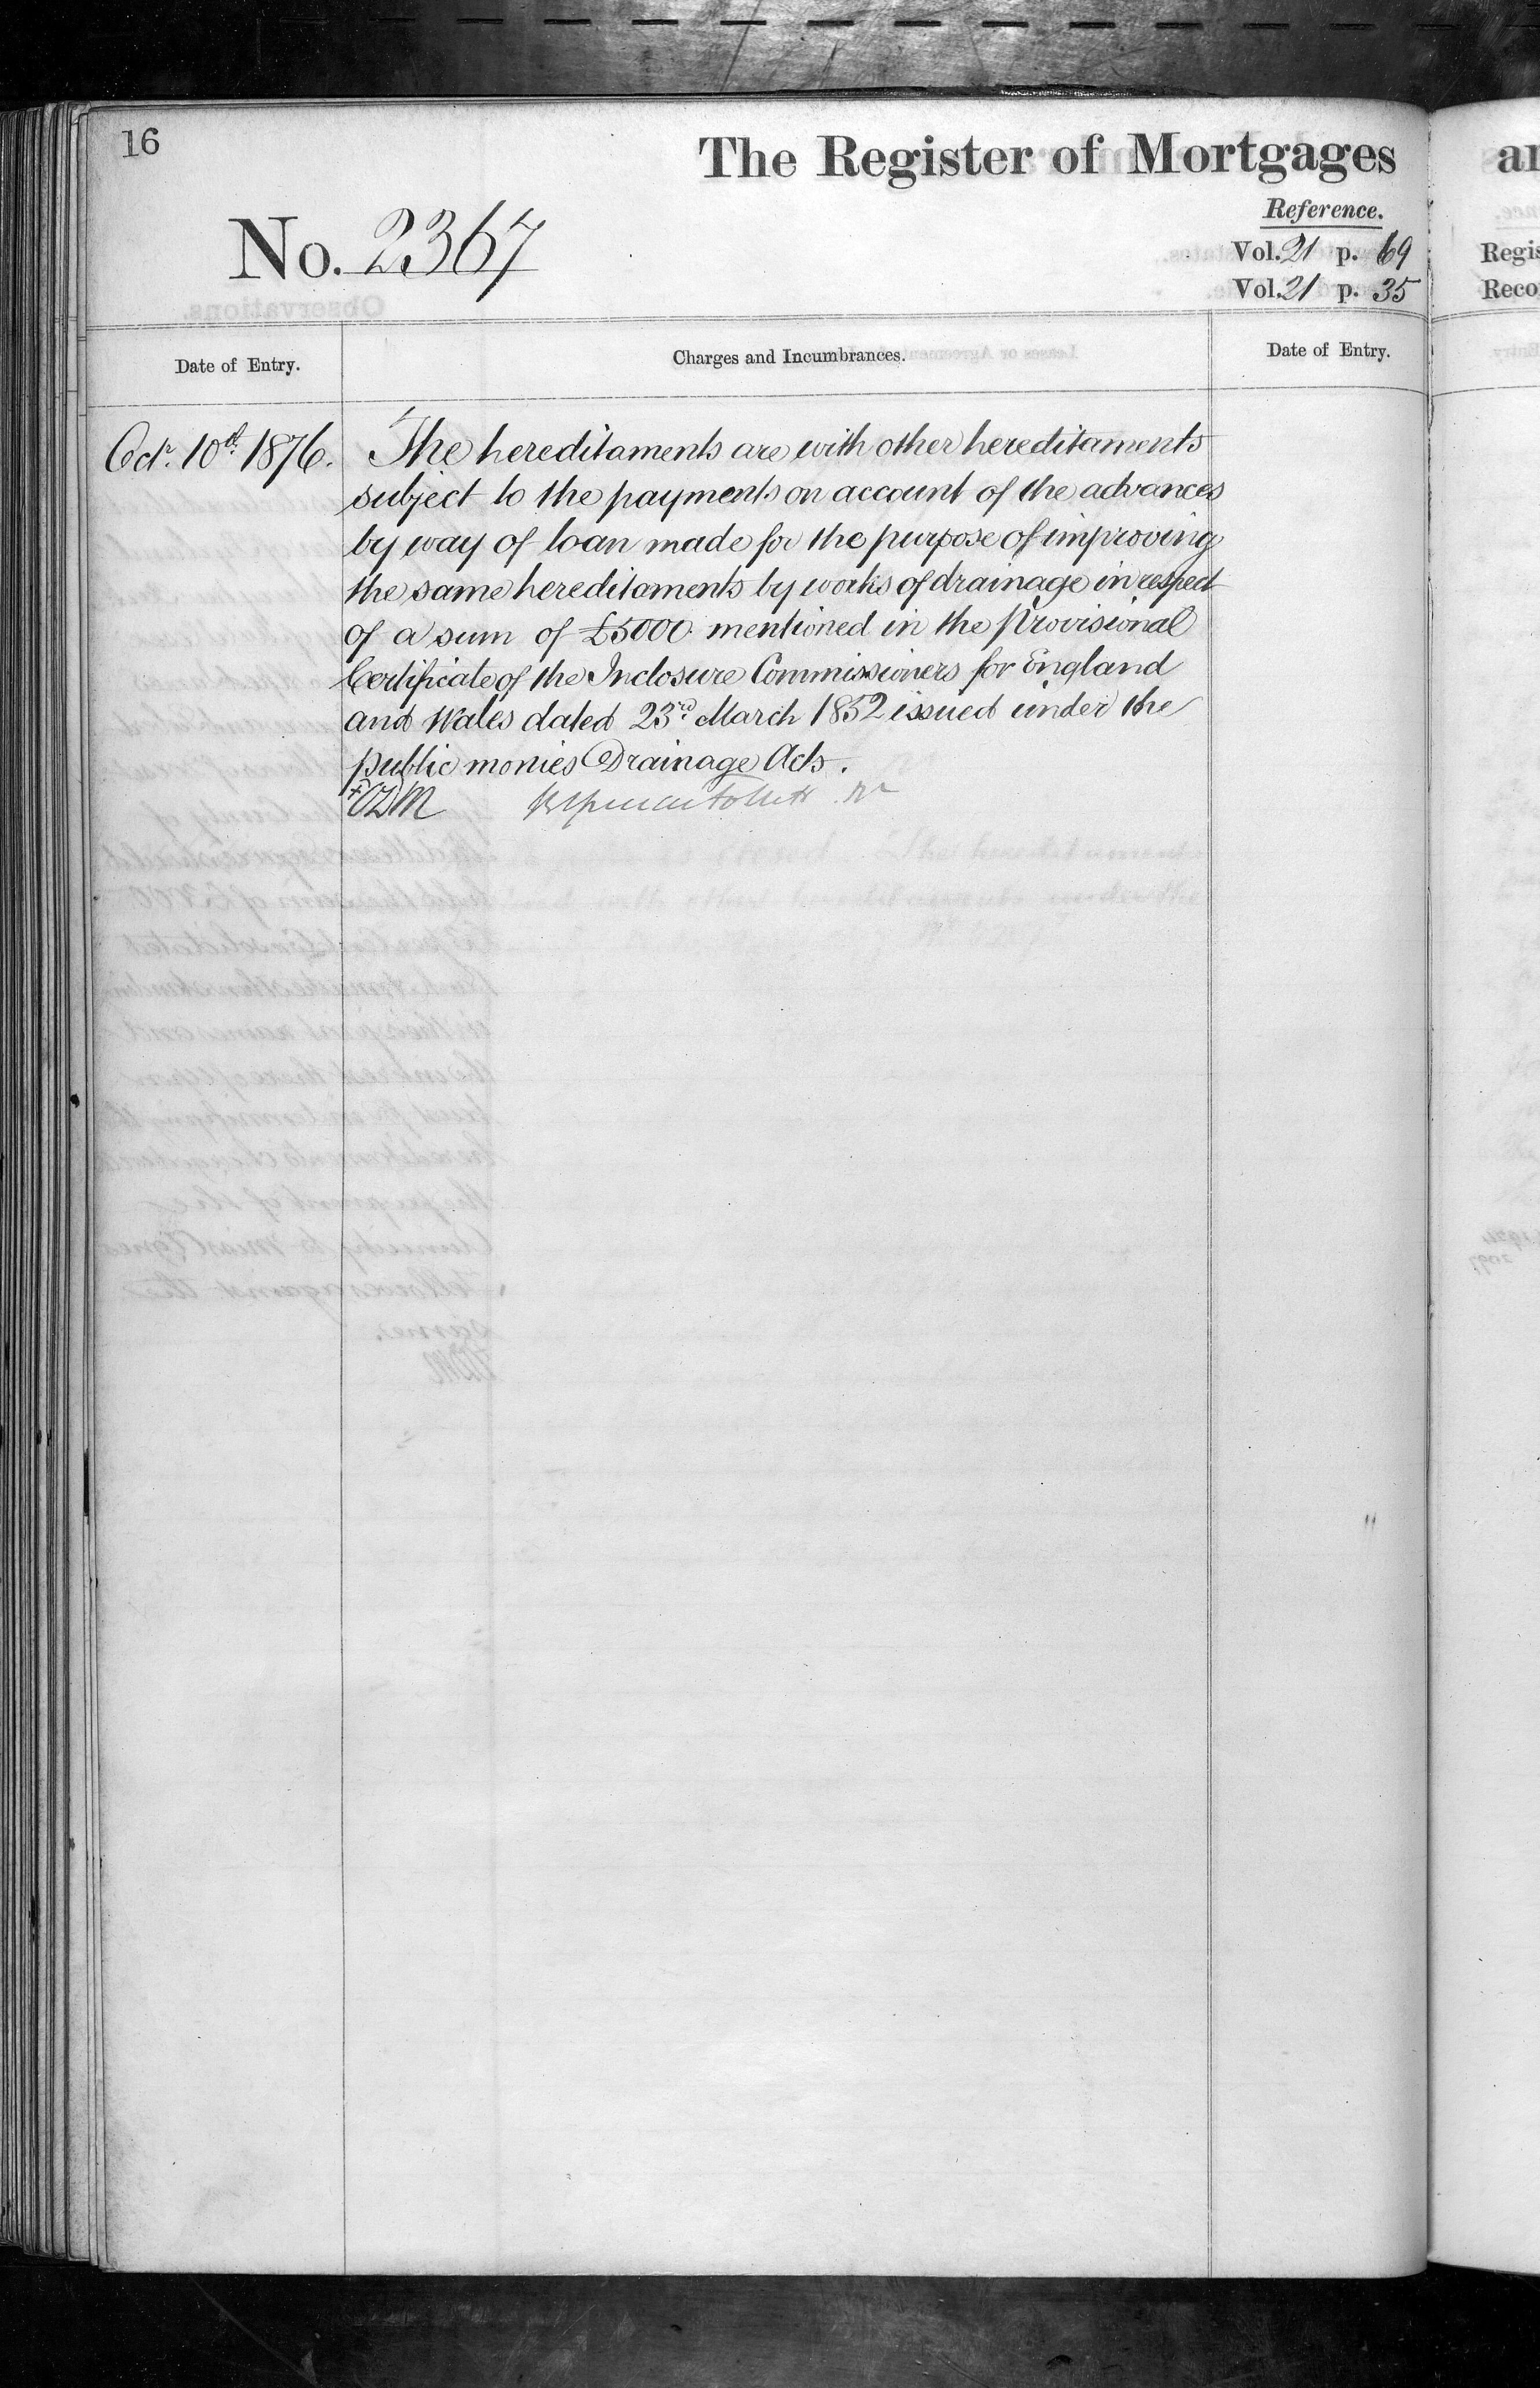 16
The Register of Mortgages
Reference.
No. 2367
Vol. 21 p. 69
Vol. 21 p. 35
Regis
Reco
Date of Entry.
Charges and Incumbrances.
Date of Entry.
Octr. 10th. 1876.
The hereditaments are with other hereditaments
subject to the payments on account of the advances
by way of loan made for the purpose of improving
the same hereditaments by works of drainage in respect
of a sum of £5000 mentioned in the Provisional
Certificate of the Inclosure Commissioners for England
and Wales dated 23rd March 1852 issued under the
public monies Drainage Acts.